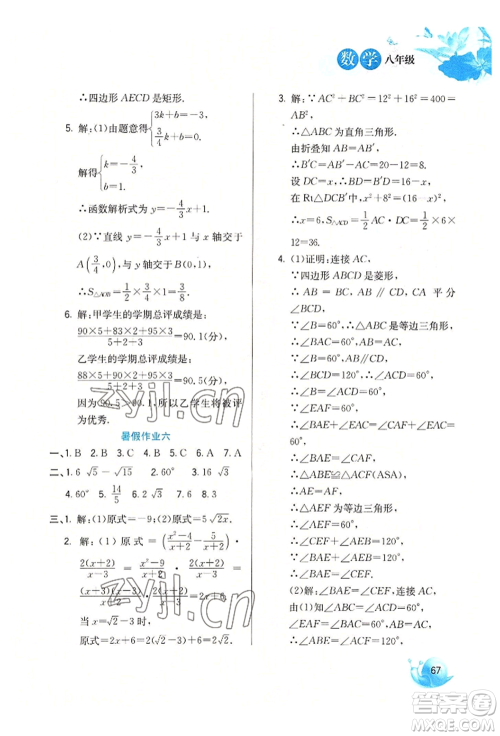 数学 八年级
∴四边形 AECD 是矩形.
5. 解：(1)由题意得{3/4 k+b=-3, -k+b=0.
解得{k=-4/3, b=1.
∴函数解析式为 y=-4/3 x+1.
(2)∵直线 y=-4/3 x+1 与 x 轴交于
A(3/4,0),与 y 轴交于点 B(0,1),
∴S△AOB=1/2×3/4×1=3/8.
6. 解:甲学生的学期总评成绩是:
(90×5+83×2+95×3)/(5+2+3)=90.1(分),
乙学生的学期总评成绩是:
(88×5+90×2+95×3)/(5+2+3)=90.5(分).
因为 90.5>90.1,所以乙学生将被评
为优秀.
暑假作业六
一、1. B 2. B 3. A 4. C 5. B 6. C 7. A
二、1. 6√5-√15 2. √3 3. 1 4. 60°
4. 60° 5. 14/5 6. 16 7. 6 8. 3
三、1. 解:(1)原式=-9;(2)原式=5√2.
2. 解:(1)原式=(x²/(x+2)-9/(x+2))
·2(x+2)/(x-3)=(x²-9)/(x+2)·2(x+2)/(x-3)=
(x+3)(x-3)/(x+2)·2(x+2)/(x-3)=2x+6.
当 x=√2-3 时,
原式=2x+6=2(√2-3)+6=2√2.
3. 解:∵AC²+BC²=12²+16²=400=
AB²,
∴△ABC 为直角三角形.
由折叠知 AC=AB′,
∴B′C=AB′-AC=20-12=8.
设 DC=x,则 DB′=16-x,
在 Rt△DCB′中,x²+8²=(16-x)²,
∴x=6,S△ACD=1/2 AC·DC=1/2×6×
12=36.
4. (1)证明:连接 AC,
∵四边形 ABCD 是菱形,
∴AB=BC,AB∥CD,AC 平分
∠BCD.
∵∠B=60°,∴△ABC 是等边三角形,
∴∠BCD=120°,
∴∠ACF=60°,
∴∠B=∠ACF.
∵∠BAC=∠EAF=60°,
∴∠BAE=∠CAF,
∴△ABE≌△ACF(ASA),
∴AE=AF.
∴∠CEF+∠AEB=120°,
∴∠BAE=∠CEF.
(2)解:∠BAE=∠CEF,连接 AC.
∵∠B=60°,
∴∠BAE+∠AEB=120°.
由(1)知△ABE≌△ACF,
∴AE=AF,
∵∠EAF=60°,
∴△AEF 为等边三角形.
∴∠AEF=60°,
∴∠AEB+∠CEF=120°,
∴∠BAE=∠CEF.
67